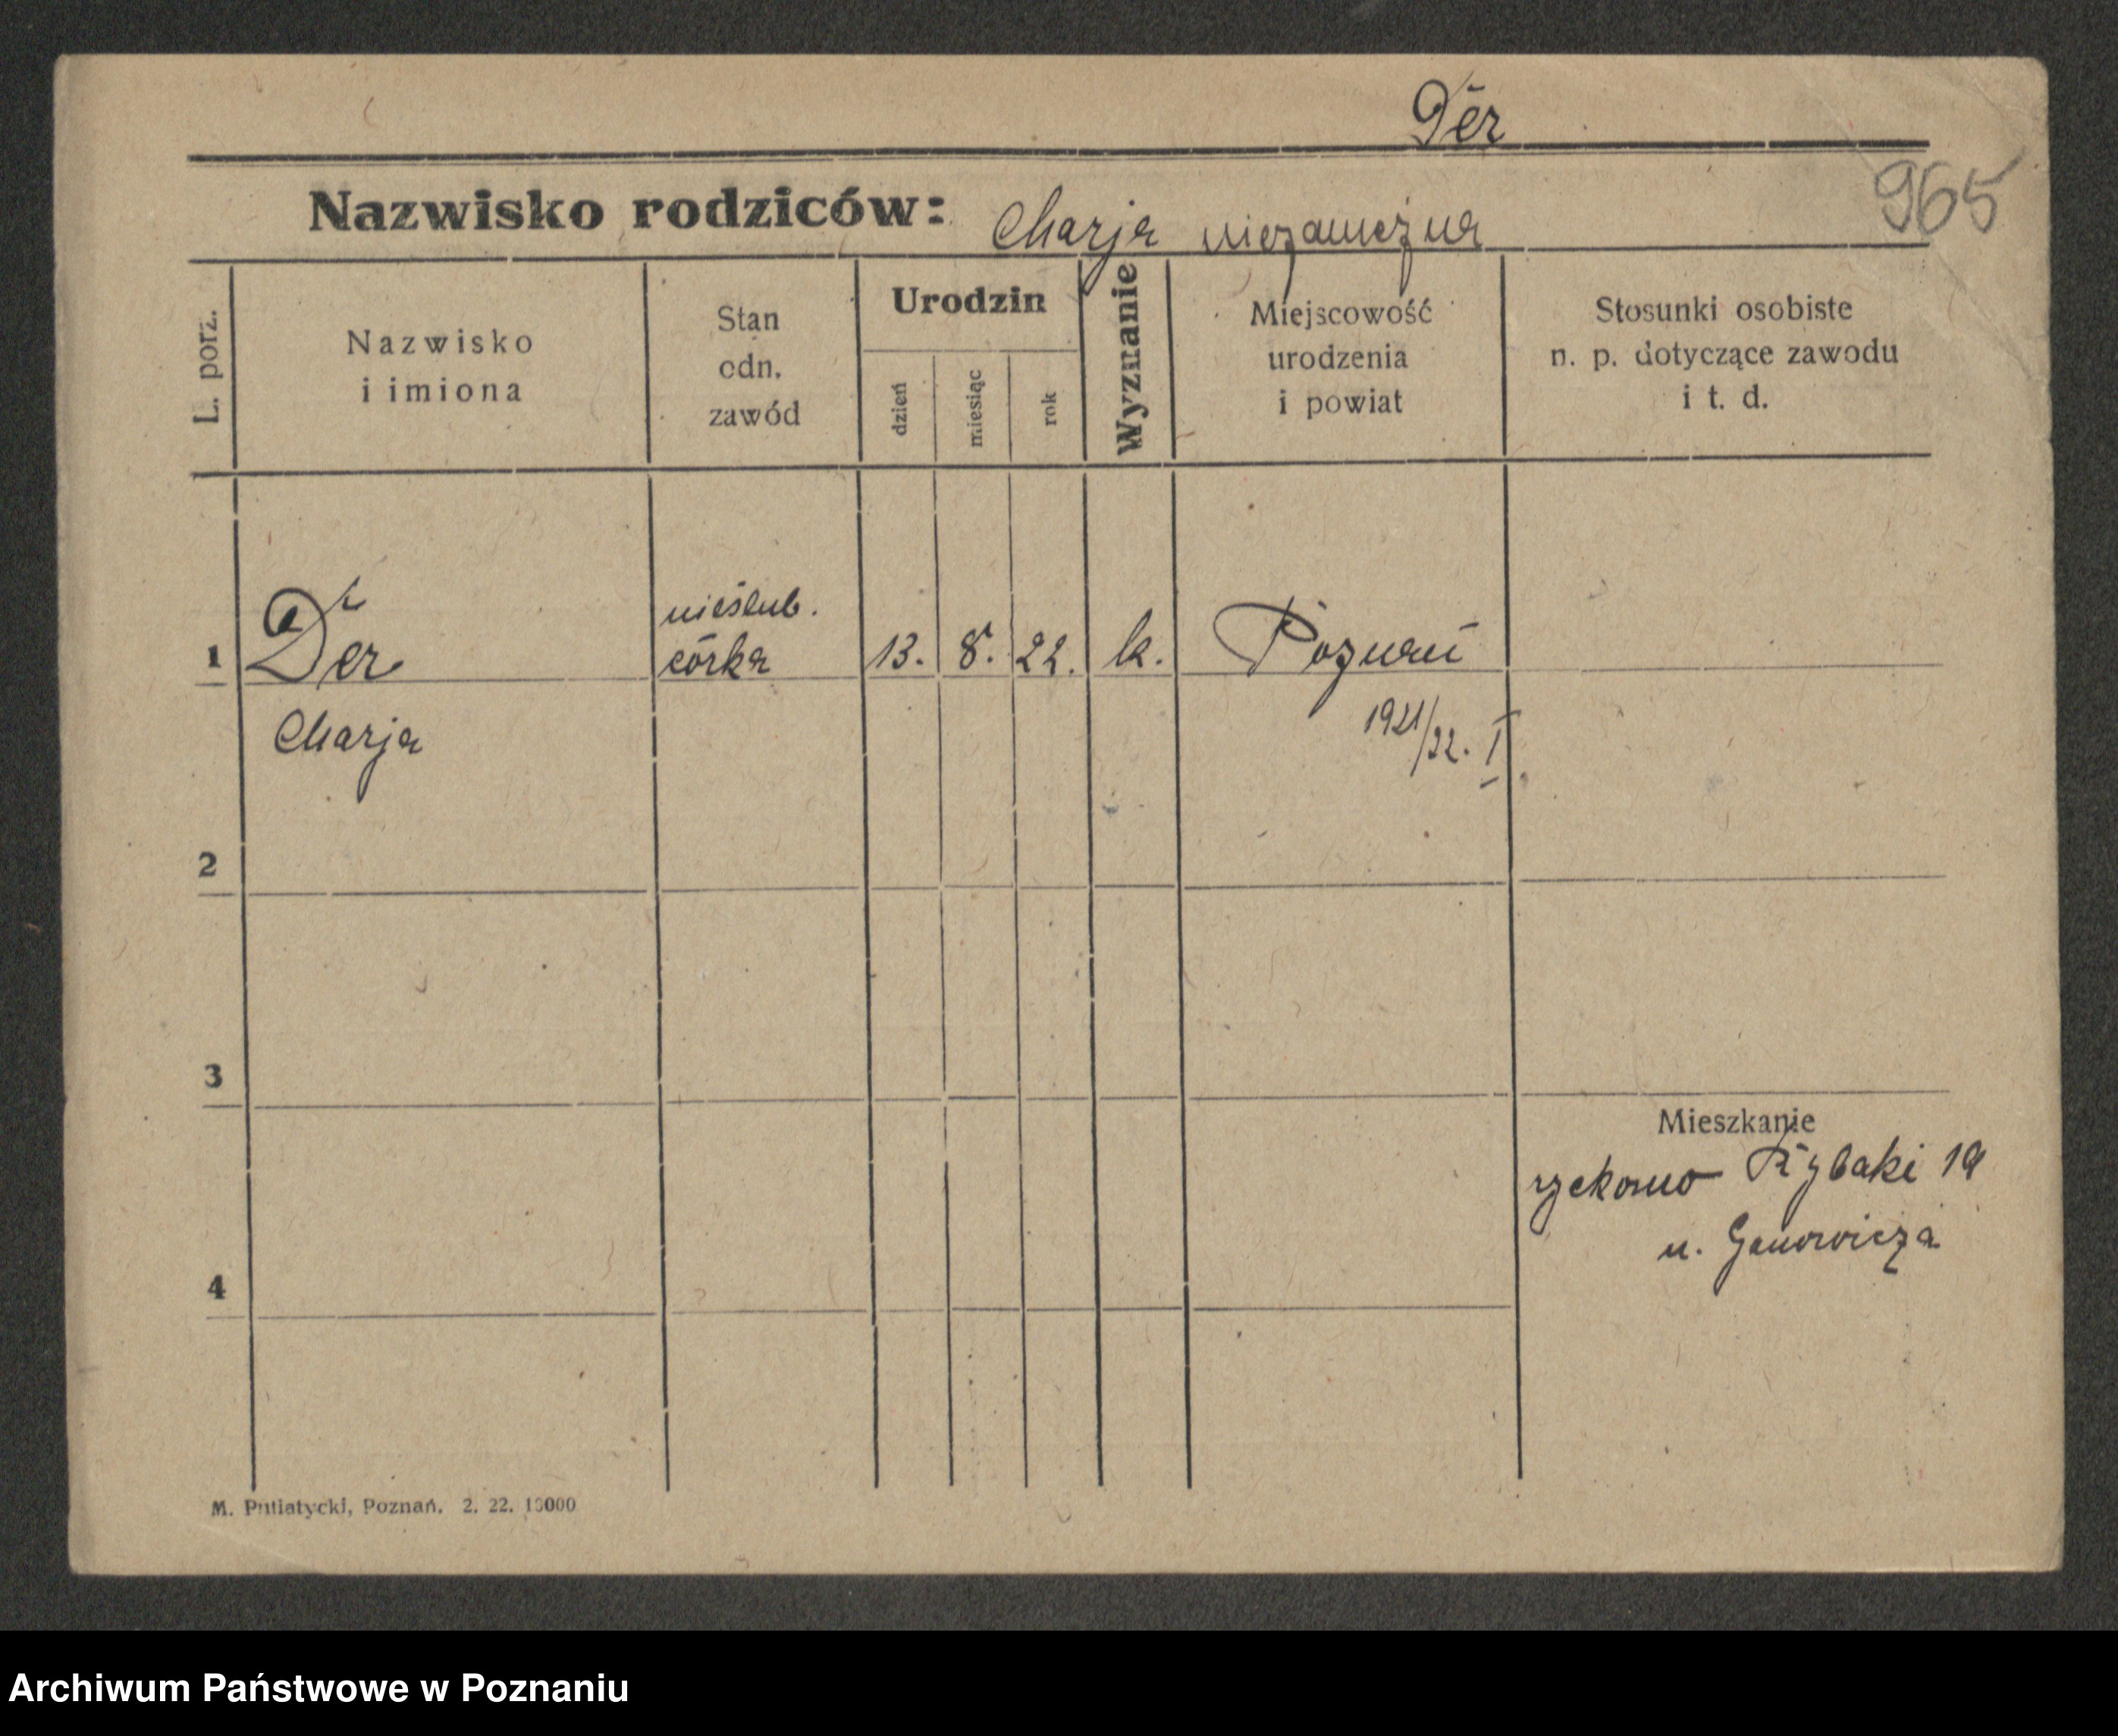 Dér
965
Nazwisko rodziców: Marja niezamężna
L. porz.
Nazwisko
i imiona
Stan
odn.
zawód
Urodzin
dzień
miesiąc
rok
Wyznanie
Miejscowość
urodzenia
i powiat
Stosunki osobiste
n. p. dotyczące zawodu
i t. d.
nieślub.
1 Dér córka 13. 8. 22. k. Poznań
Marja
1921/22. I
2
3
Mieszkanie
rzekomo Rybaki 19
u. Ganowicza
4
M. Putiatycki, Poznań. 2. 22. 10000
Archiwum Państwowe w Poznaniu